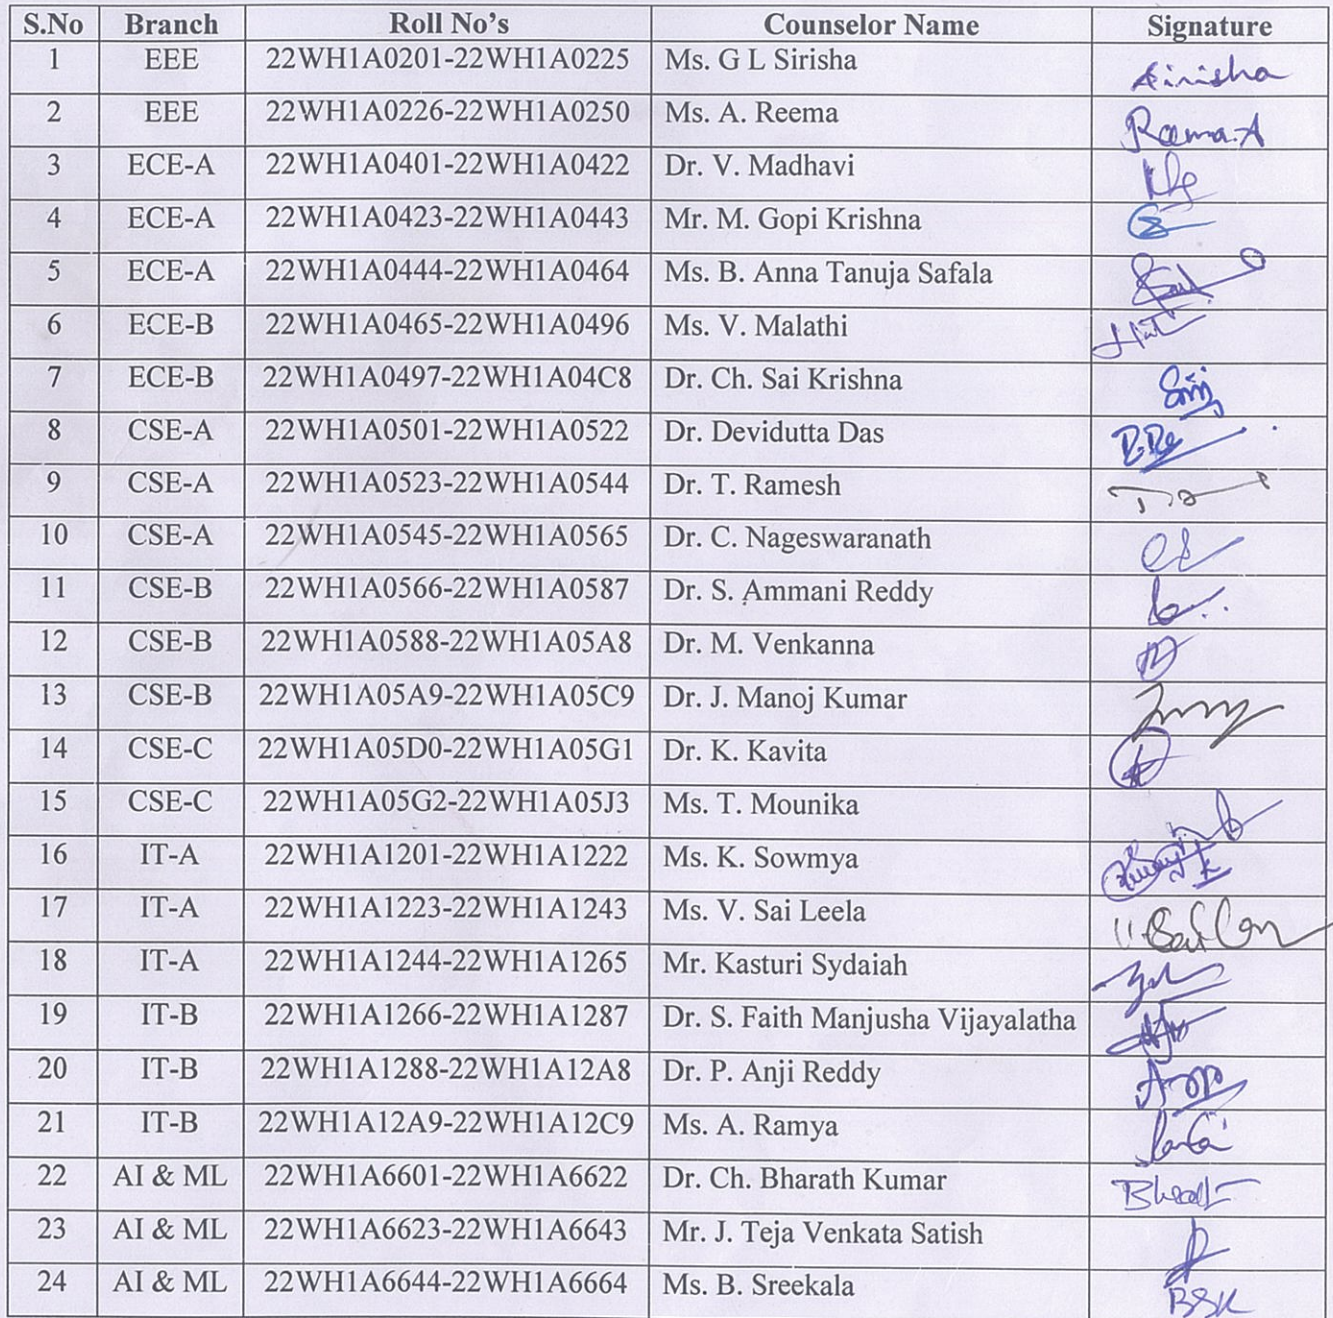 S.No Branch Roll No's Counselor Name Signature
1 EEE 22WH1A0201-22WH1A0225 Ms. G L Sirisha Sirisha
2 EEE 22WH1A0226-22WH1A0250 Ms. A. Reema Reema.A
3 ECE-A 22WH1A0401-22WH1A0422 Dr. V. Madhavi
4 ECE-A 22WH1A0423-22WH1A0443 Mr. M. Gopi Krishna
5 ECE-A 22WH1A0444-22WH1A0464 Ms. B. Anna Tanuja Safala
6 ECE-B 22WH1A0465-22WH1A0496 Ms. V. Malathi
7 ECE-B 22WH1A0497-22WH1A04C8 Dr. Ch. Sai Krishna
8 CSE-A 22WH1A0501-22WH1A0522 Dr. Devidutta Das
9 CSE-A 22WH1A0523-22WH1A0544 Dr. T. Ramesh
10 CSE-A 22WH1A0545-22WH1A0565 Dr. C. Nageswaranath
11 CSE-B 22WH1A0566-22WH1A0587 Dr. S. Ammani Reddy
12 CSE-B 22WH1A0588-22WH1A05A8 Dr. M. Venkanna
13 CSE-B 22WH1A05A9-22WH1A05C9 Dr. J. Manoj Kumar
14 CSE-C 22WH1A05D0-22WH1A05G1 Dr. K. Kavita
15 CSE-C 22WH1A05G2-22WH1A05J3 Ms. T. Mounika
16 IT-A 22WH1A1201-22WH1A1222 Ms. K. Sowmya
17 IT-A 22WH1A1223-22WH1A1243 Ms. V. Sai Leela
18 IT-A 22WH1A1244-22WH1A1265 Mr. Kasturi Sydaiah
19 IT-B 22WH1A1266-22WH1A1287 Dr. S. Faith Manjusha Vijayalatha
20 IT-B 22WH1A1288-22WH1A12A8 Dr. P. Anji Reddy
21 IT-B 22WH1A12A9-22WH1A12C9 Ms. A. Ramya
22 AI & ML 22WH1A6601-22WH1A6622 Dr. Ch. Bharath Kumar
23 AI & ML 22WH1A6623-22WH1A6643 Mr. J. Teja Venkata Satish
24 AI & ML 22WH1A6644-22WH1A6664 Ms. B. Sreekala BSK